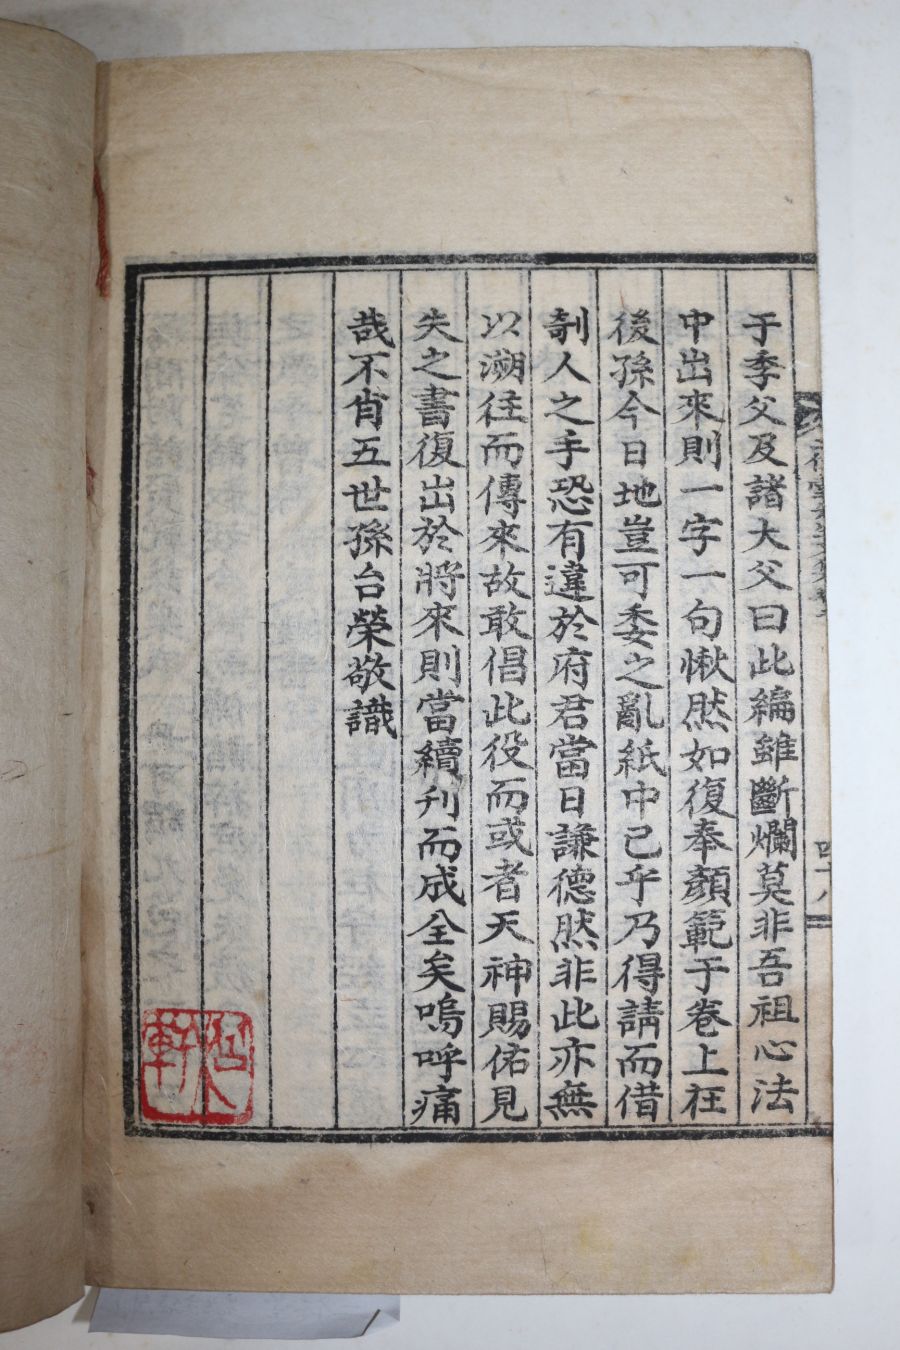 于季父及諸大父曰此編雖斷爛莫非吾祖心法
中出來則一字一句愀然如復奉顏範于卷上在
後孫今日地豈可委之亂紙中已乎乃得請而借
剞人之手恐有違於府君當日謙德然非此亦無
以溯往而傳來故敢倡此役而或者天神賜佑見
失之書復出於將來則當續刋而成全矣嗚呼痛
哉不肖五世孫台榮敬識
四十八
軒